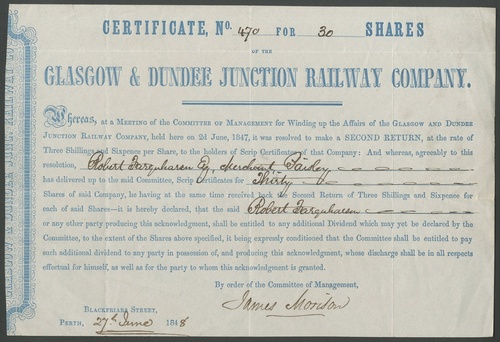 CERTIFICATE, No. 470 FOR 30 SHARES
OF THE
GLASGOW & DUNDEE JUNCTION RAILWAY COMPANY.
Whereas, at a MEETING of the COMMITTEE OF MANAGEMENT for Winding up the Affairs of the GLASGOW AND DUNDEE
JUNCTION RAILWAY COMPANY, held here on 2d June, 1847, it was resolved to make a SECOND RETURN, at the rate of
Three Shillings and Sixpence per Share, to the holders of Scrip Certificates of that Company: And whereas, agreeably to this
resolution, Robert Farquharson Esq, Merchant,
has delivered up to the said Committee, Scrip Certificates for Thirty
Shares of said Company, he having at the same time received back as Second Return of Three Shillings and Sixpence for
each of said Shares—it is hereby declared, that the said Robert Farquharson
or any other party producing this acknowledgment, shall be entitled to any additional Dividend which may yet be declared by the
Committee, to the extent of the Shares above specified, it being expressly conditioned that the Committee shall be entitled to pay
such additional dividend to any party in possession of, and producing this acknowledgment, whose discharge shall be in all respects
effectual for himself, as well as for the party to whom this acknowledgment is granted.
By order of the Committee of Management,
James Morison
BLACKFRIARS STREET,
PERTH, 27th June 1848
GLASGOW & DUNDEE JUNCT. RAILWAY CO.